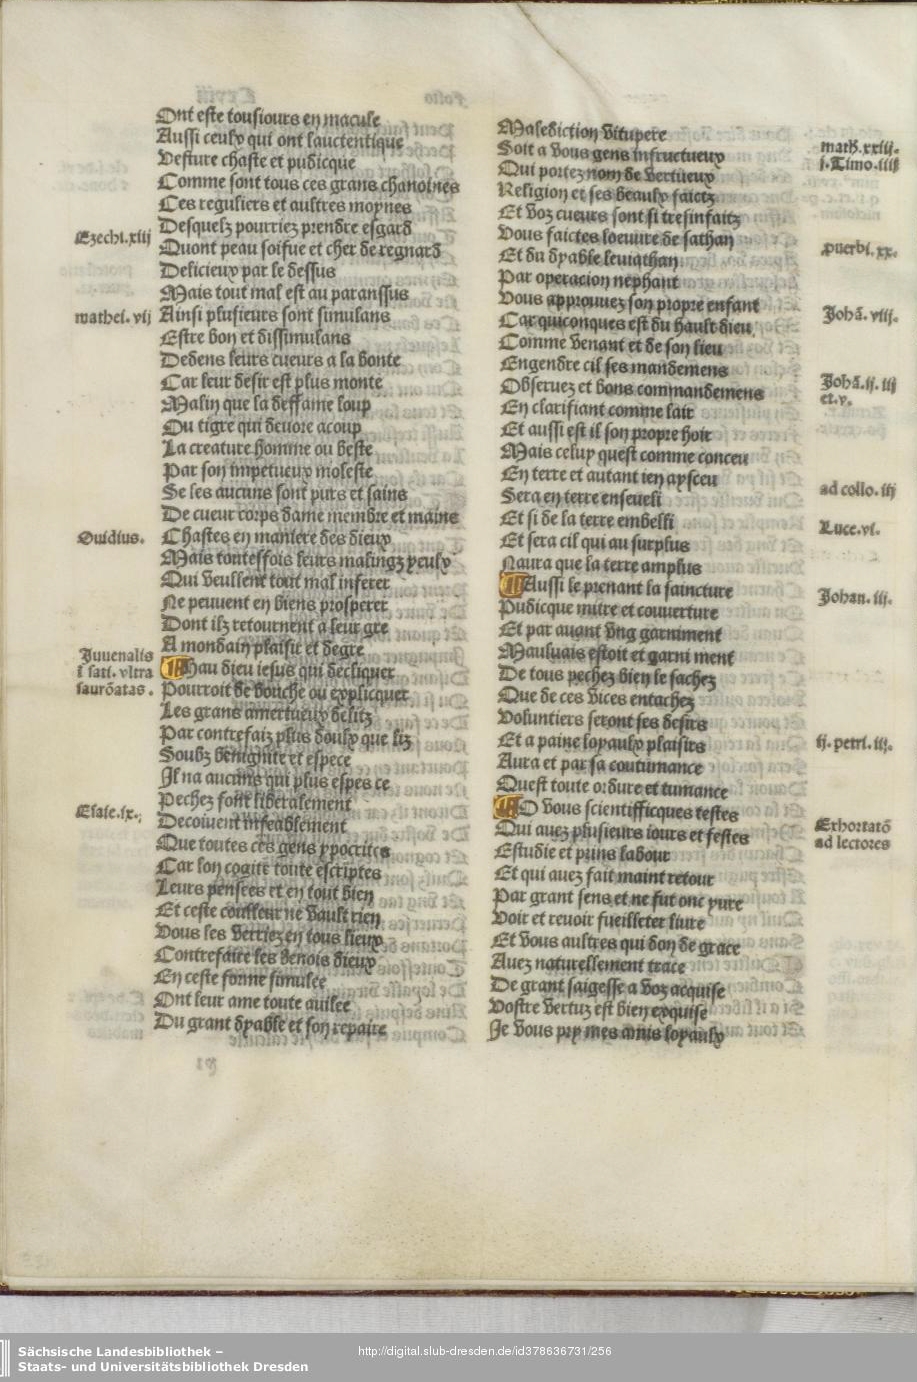 Ont este tousiours en macule
Aussi ceulx qui ont lauctentique
Vesture chaste et pudicque
Comme sont tous ces grans chanoines
Ces reguliers et aultres moynes
Desquelz pourriez prendre esgard
Ezechi.xiij
Quont peau soifue et cher de regnard
Delicieux par le dessus
Mais tout mal est au paranssus
mathei. vij
Ainsi plusieurs sont simulans
Estre bon et dissimulans
Dedens leurs cueurs a la bonte
Car leur desir est plus monte
Malin que la deffame loup
Ou tigre qui deuore acoup
La creature homme ou beste
Par son impetueux moleste
Se les aucuns sont purs et sains
De cueur corps dame membre et mains
Ouidius.
Chastes en maniere des dieux
Mais toutessfois leurs malingz yeulx
Qui veullent tout mal inferer
Ne peuuent en biens prosperer
Dont ilz retournent a leur gre
A mondain plaisir et degre
Juuenalis
i sati. vltra
saurōatas.
Hau dieu iesus qui decliquer
Pourroit de bouche ou explicquer
Les grans amertueux delitz
Par contrefaiz plus doulx que liz
Soubz benignite et espece
Il na aucuns qui plus espes ce
Pechez font liberalement
Esaie.ix.
Decoiuent infeablement
Que toutes ces gens ypocrites
Car lon cogite toute escriptes
Leurs pensees et en tout bien
Et ceste coulleur ne vault rien
Vous les verriez en tous lieux
Contrefaire les benois dieux
En ceste forme simulee
Ont leur ame toute auilee
Du grant dyable et son repaire
Malediction vitupere
Soit a vous gens infructueux
math. xxiij.
i. Timo. iiij
Qui portez nom de vertueux
Religion et ses beaulx faictz
Et voz cueurs sont si tresinfaitz
Vous faictes loeuure de sathan
puerbi. xx.
Et du dyable leuiathan
Par operacion nephant
Vous approuuez son propre enfant
Car quiconques est du hault dieu
Johā. viij.
Comme venant et de son lieu
Engendre cil ses mandemens
Obseruez et bons commandemens
Johā. ij. iij
et. v.
En clarifiant comme lair
Et aussi est il son propre hoir
Mais celuy quest comme conceu
En terre et autant ien aysceu
Sera en terre enseueli
ad collo. iij
Et si de la terre embelli
Et sera cil qui au surplus
Luce. vi.
Naura que la terre amplus
Aussi le prenant la faincture
Pudicque mitre et couuerture
Johan. iii.
Et par auant vng garniment
Maulvais estoit et garni ment
De tous pechez bien le sachez
Que de ces vices entachez
Voluntiers seront ses desirs
Et a paine loyaulx plaisirs
ij. petri. iij.
Aura et par sa coutumance
Quest toute ordure et tumance
O vous scientifficques testes
Qui auez plusieurs iours et festes
Exhortatō
ad lectores
Estudie et prins labour
Et qui auez fait maint retour
Par grant sens et ne fut onc yure
Voir et reuoir fueilleter liure
Et vous aultres qui don de grace
Auez naturellement trace
De grant saigesse a voz acquise
Vostre vertuz est bien exquise
Je vous pry mes amis loyaulx
Sächsische Landesbibliothek –
Staats- und Universitätsbibliothek Dresden
http://digital.slub-dresden.de/id378636731/256